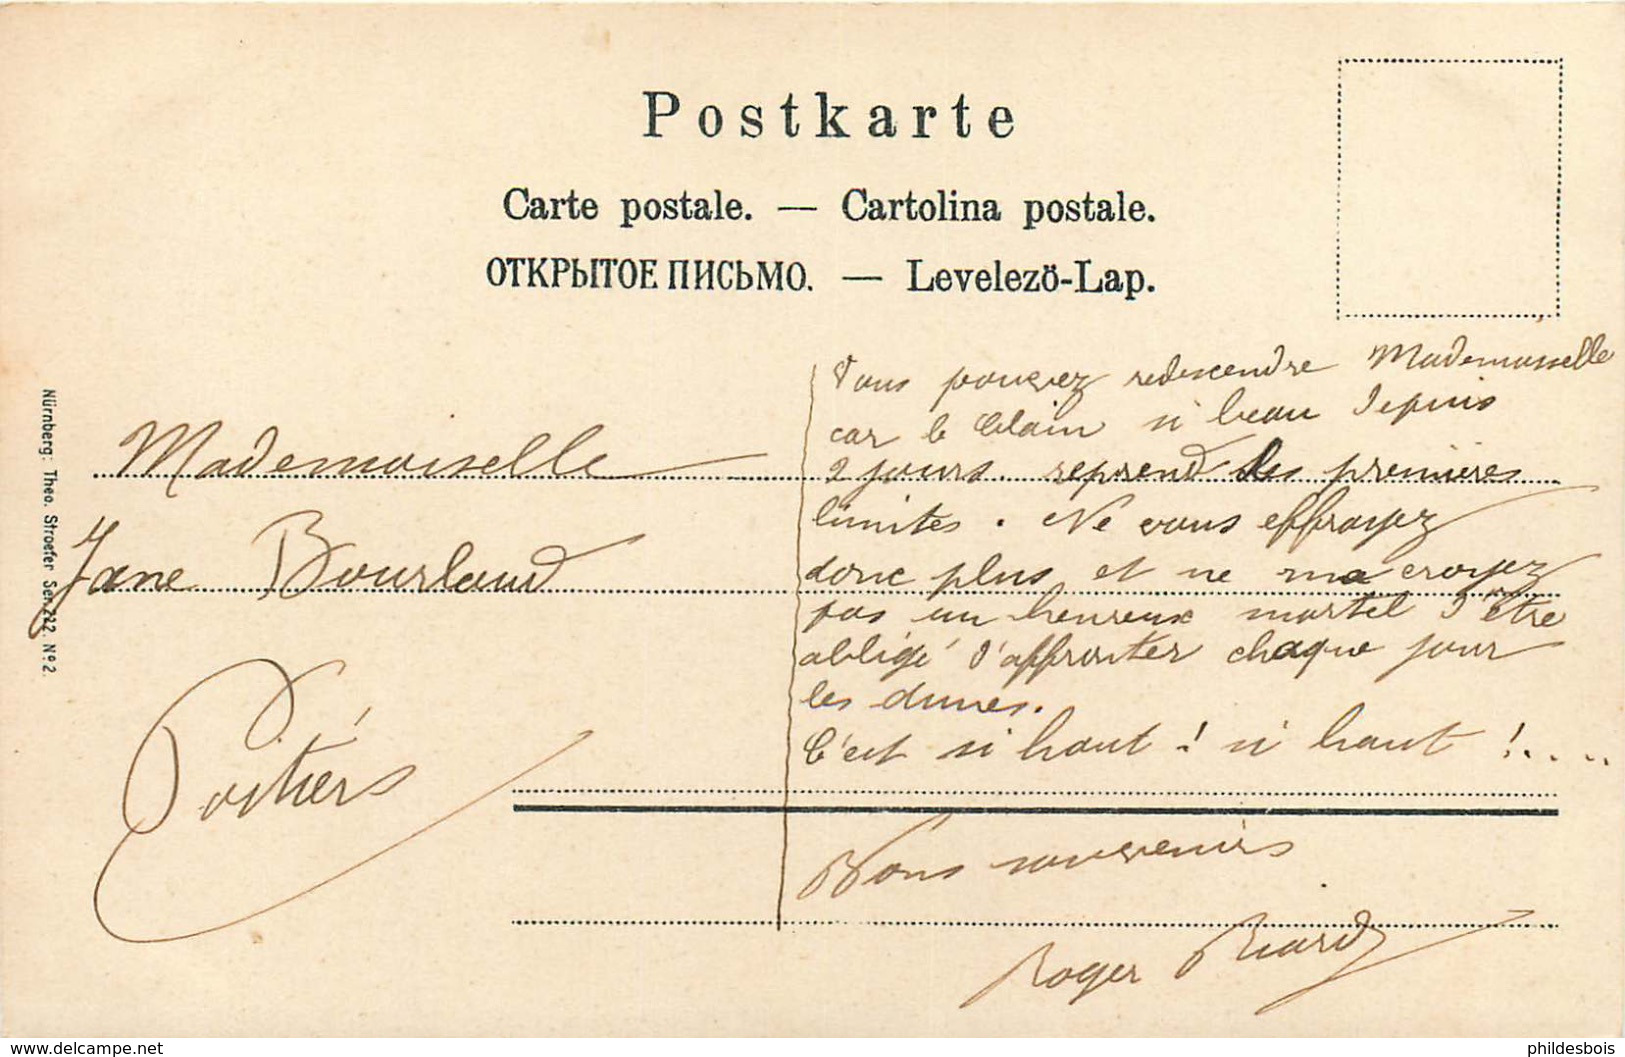 Postkarte
Carte postale. — Cartolina postale.
ОТКРЫТОЕ ПИСЬМО. — Levelezö-Lap.
Nürnberg: Theo. Stroefer Ser. 222. No 2.
Mademoiselle
Jane Bourland
Poitiers
Vous pouvez redescendre Mademoiselle
car le Clain si beau depuis
2 jours reprend les premières
limites. Ne vous effrayez
donc plus et ne me croyez
pas un heureux mortel d'être
obligé d'affronter chaque jour
les dunes.
C'est si haut ! si haut !....
Bons souvenirs
Roger
delcampe.net
phildesbois